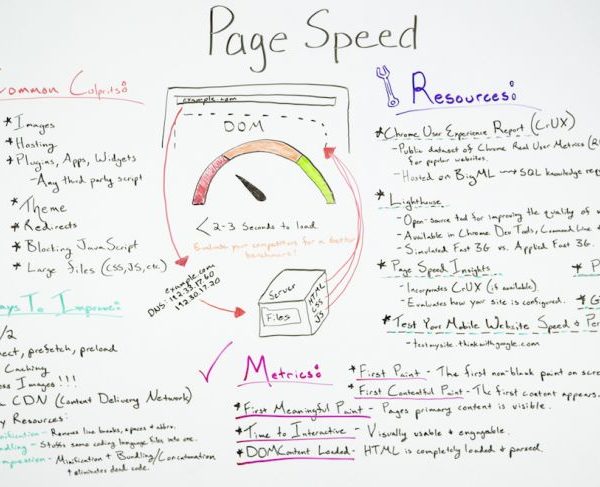 Page Speed
Common Culprits:
* Images
* Hosting
* Plugins, Apps, Widgets
- Any third party script
* Theme
* Redirects
* Blocking JavaScript
* Large files (CSS, JS, etc.)
example.com
DOM
< 2-3 Seconds to load
Evaluate your competitors for a better
benchmark!
example.com
DNS:
Server
Files
HTML
CSS
JS
Resources:
* Chrome User Experience Report (CrUX)
- Public dataset of Chrome Real User Metrics
for popular websites.
- Hosted on BigML → SQL knowledge
* Lighthouse
- Open-source tool for improving the quality of
- Available in Chrome Dev Tools, Command Line &
- Simulated Fast 3G vs. Applied Fast 3G.
* Page Speed Insights
- Incorporates CrUX (if available).
- Evaluates how your site is configured.
* Test Your Mobile Website Speed &
- testmysite.thinkwithgoogle.com
Ways To Improve:
/2
prefetch, preload
Caching
Images!!!
CDN (Content Delivery Network)
Resources:
- Removes line breaks, spaces & abbrv.
- Stuffs same coding language files into one.
- Minification + Bundling/Concatenation
& eliminates dead code.
Metrics:
* First Paint - The first non-blank paint on
* First Contentful Paint - The first content appears.
* First Meaningful Paint - Pages primary content is visible.
* Time to Interactive - Visually usable & engagable.
* DOM Content Loaded - HTML is completely loaded & parsed.